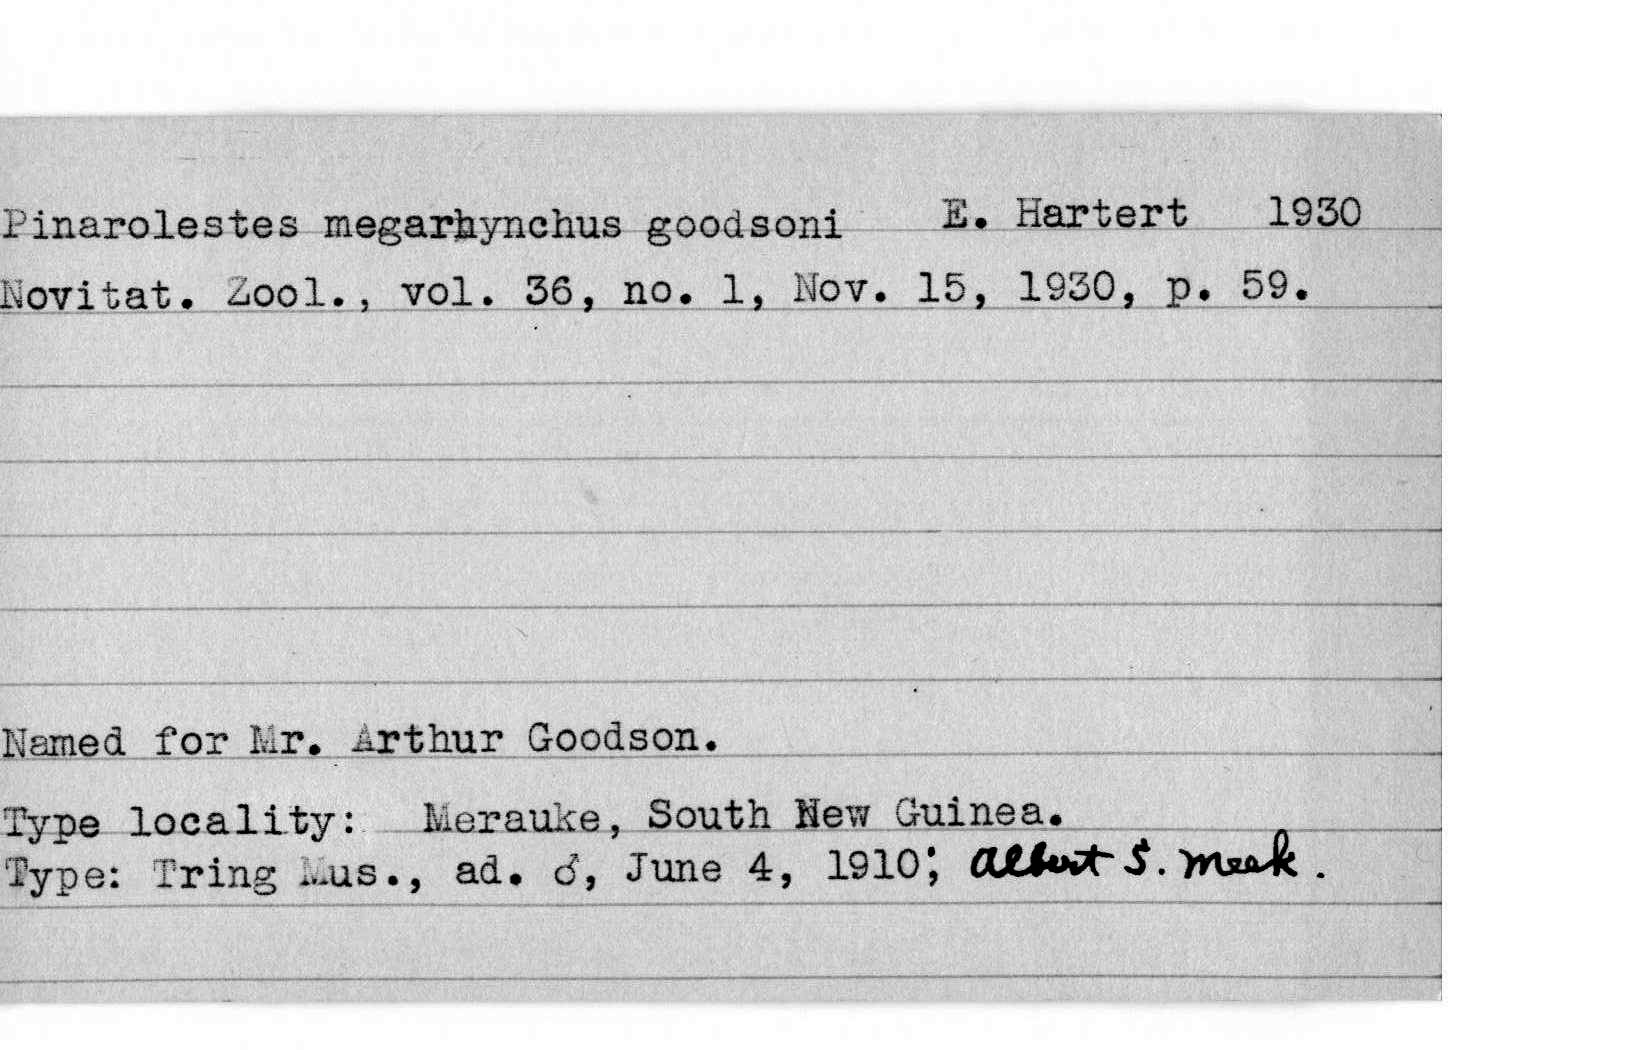 Pinarolestes megarhynchus goodsoni E. Hartert 1930
Novitat. Zool., vol. 36, no. 1, Nov. 15, 1930, p. 59.
Named for Mr. Arthur Goodson.
Type locality: Merauke, South New Guinea.
Type: Tring Mus., ad. ♂, June 4, 1910; Albert S. Meek.